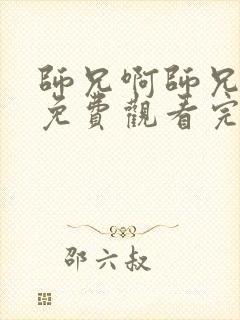 師兄啊師兄
免費觀看完
邵六叔